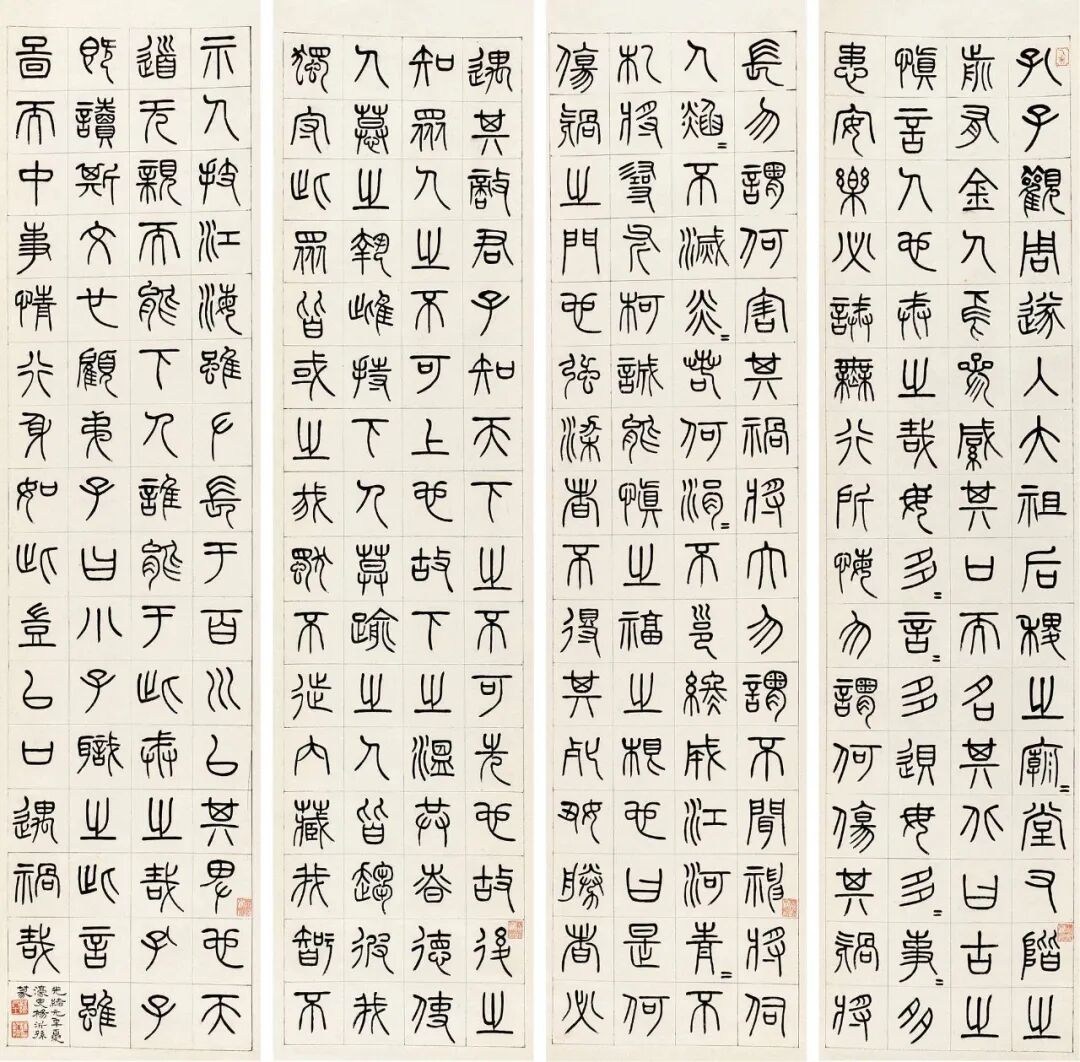 孔子觀周遂入大祖后稷之廟=堂又階之
歬有金人焉參緘其口而名其北曰古之
慎言人也戒之哉毋多=言=多敗毋多=事=多
患安樂必誡無行所悔勿謂何傷其禍將
長勿謂何害其禍將大勿謂不聞神將伺
人焰=不滅炎=若何涓=不邕終成江河青=不
札將尋斧柯誠能慎之福之根也曰是何
傷禍之門也強梁者不得其死好勝者必
遇其敵君子知天下之不可先也故後之
知眾人之不可上也故下之溫恭眘德使
人慕之執雌持下人莫踰之人皆趨彼我
獨守此眾皆或之我獨不徙內藏我智不
示人技江海雖左長于百川以其卑也天
道无親而能下人誰能于此戒之哉孔子
既讀斯文也顧弟子曰小子識之此言雖
鄙而中事情行身如此豈以口遇禍哉
光緒元年夏
濠叟楊沂孫
篆